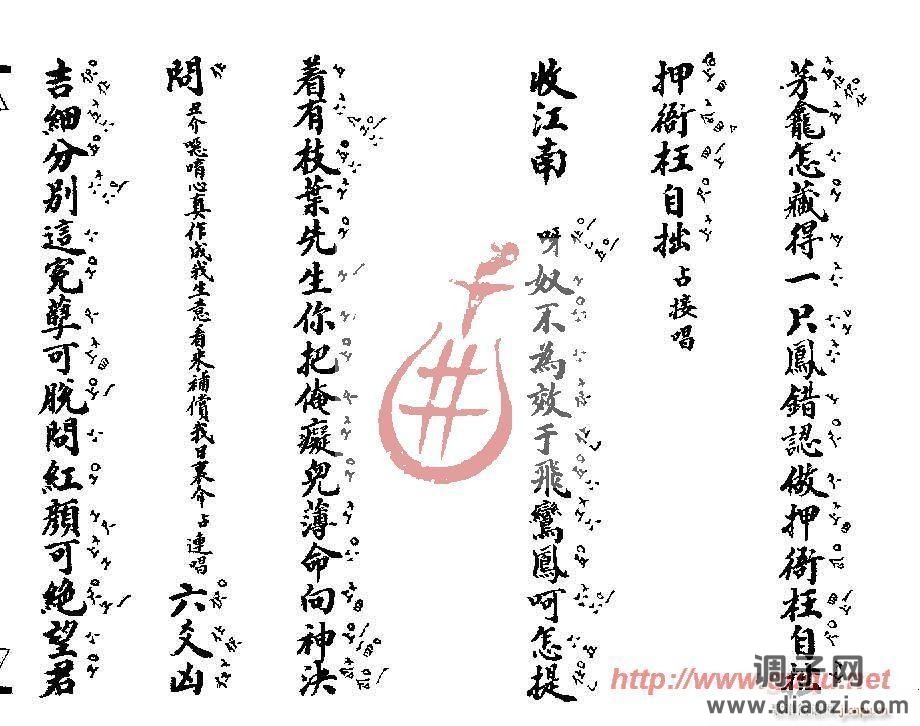 茅龕怎藏得一只鳳錯認做押衙枉自拙
押衙枉自拙占接唱
收江南 呀奴不為效于飛鸞鳳呵怎提
着有枝葉先生你把俺癡兒薄命向神決
問丑介噁唷心真作成我生意看來補償我日裏介占連唱六爻凶
吉細分別這冤孽可脫問紅顏可絕望君
http://www.
调子网
www.diaozi.com